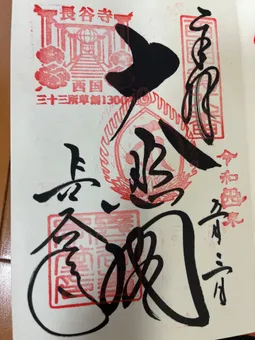 奉拝
令和四年
五月三日
大悲閣
長谷寺
西国
三十三所草創1300年
長谷寺